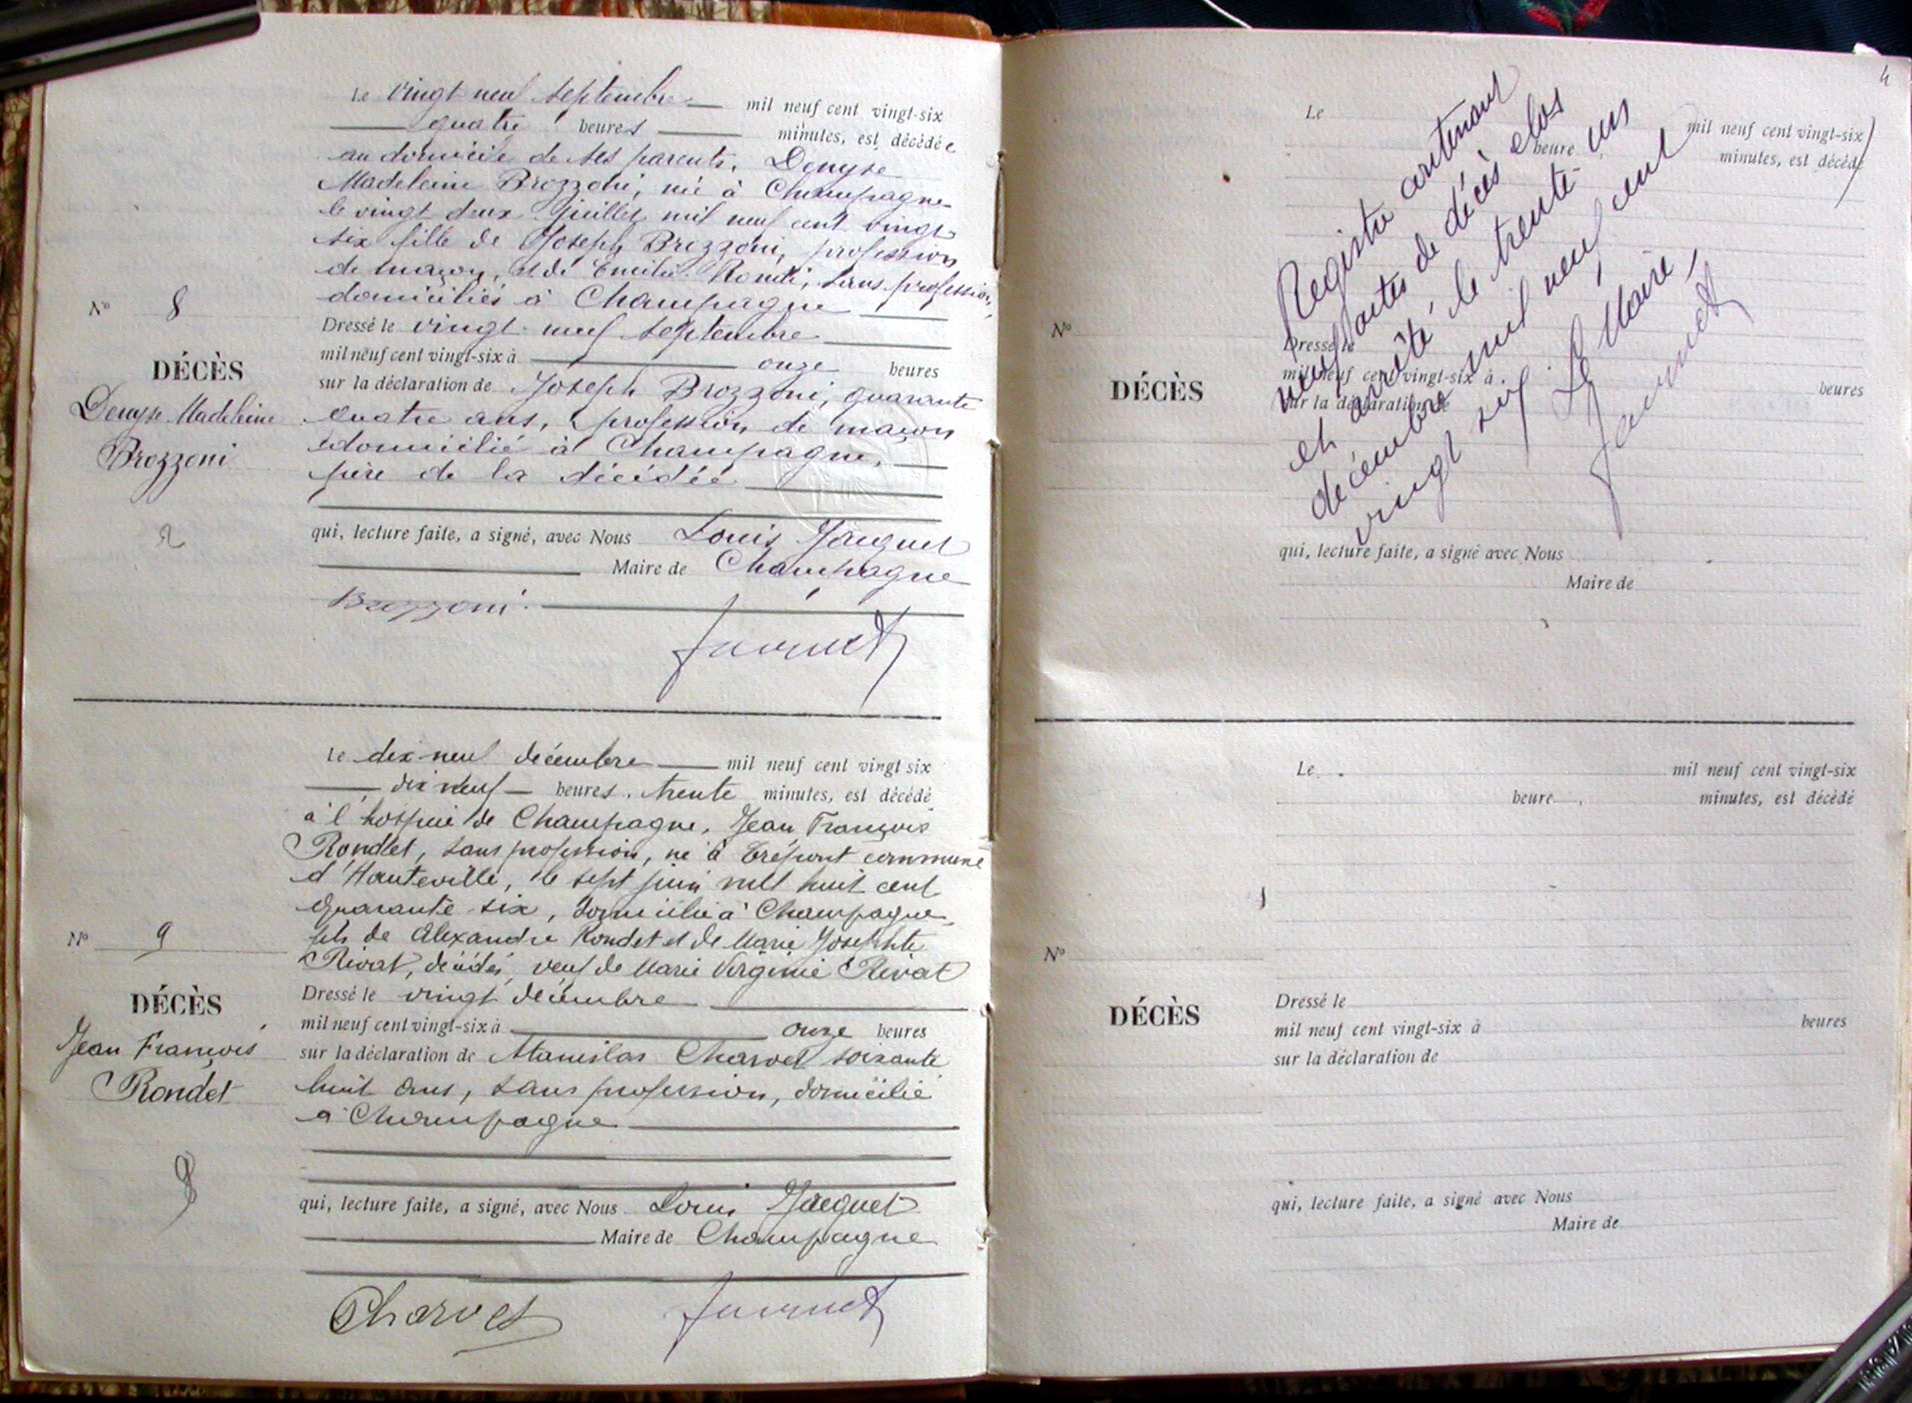 Le vingt neuf septembre mil neuf cent vingt-six
quatre heures minutes, est décédée
au domicile de ses parents, Denyse
Madeleine Brozzoni, née à Champagne
le vingt deux juillet mil neuf cent vingt
six fille de Joseph Brozzoni, profession
de maçon, et de Emilie Rondi, sans profession,
domiciliés à Champagne
Dressé le vingt neuf septembre
mil neuf cent vingt-six à onze heures
sur la déclaration de Joseph Brozzoni, quarante
quatre ans, profession de maçon
domicilié à Champagne,
père de la décédée
qui, lecture faite, a signé, avec Nous Louis Jacquet
Maire de Champagne
Brozzoni
Jacquet
N° 8
DÉCÈS
Denyse Madeleine
Brozzoni
Le dix-neuf décembre mil neuf cent vingt six
dix neuf heures trente minutes, est décédé
à l'hospice de Champagne, Jean François
Rondet, sans profession, né à Trépont commune
d'Hauteville, le sept juin mil huit cent
quarante six, domicilié à Champagne,
fils de Alexandre Rondet et de Marie Josephte
Rivat, décédés, veuf de Marie Virginie Rivat
Dressé le vingt décembre
mil neuf cent vingt-six à onze heures
sur la déclaration de Stanislas Charvet soixante
huit ans, sans profession, domicilié
à Champagne
qui, lecture faite, a signé, avec Nous Louis Jacquet
Maire de Champagne
Charvet Jacquet
N° 9
DÉCÈS
Jean François
Rondet
4
Le mil neuf cent vingt-six
heure minutes, est décédé
N°
DÉCÈS
Dressé le
mil neuf cent vingt-six à heures
sur la déclaration de
qui, lecture faite, a signé avec Nous
Maire de
Registre contenant
neuf actes de décès clos
et arrêté le trente-un
décembre mil neuf cent
vingt six
Le Maire,
Jacquet
Le mil neuf cent vingt-six
heure minutes, est décédé
N°
DÉCÈS
Dressé le
mil neuf cent vingt-six à heures
sur la déclaration de
qui, lecture faite, a signé avec Nous
Maire de